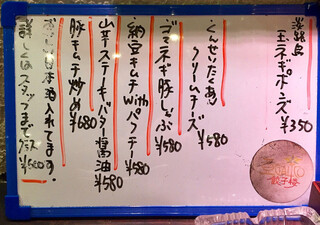 淡路島
玉ネギポンズ
¥350
くんせいたくあん
クリームチーズ
¥580
ゴマネギ豚しゃぶ
¥580
納豆キムチwithパクチー
¥580
山芋ステーキバター醤油
¥580
豚キムチ炒め
¥680
日本酒入れてます!
詳しくはスタッフまで
グラス ¥500
餃子楼